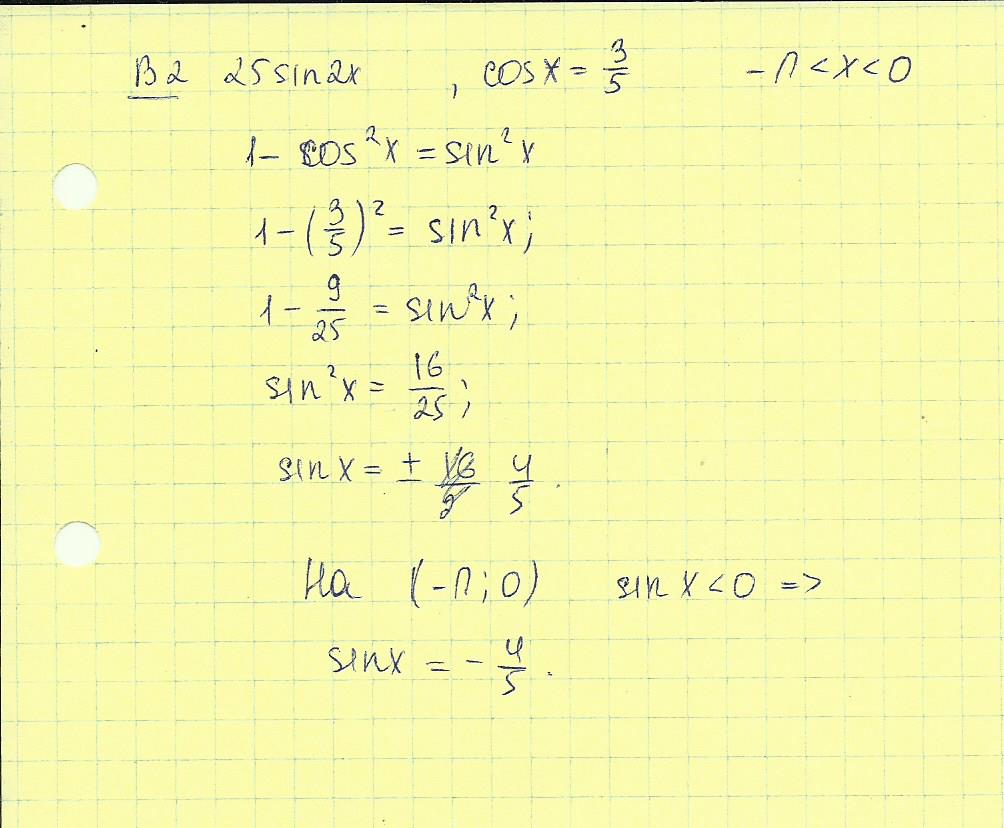 В2 25 sin2x , cosx = 3/5 -π < x < 0
1 - cos²x = sin²x
1 - (3/5)² = sin²x;
1 - 9/25 = sin²x;
sin²x = 16/25;
sinx = ± 4/5.
На (-π; 0) sinx < 0 =>
sinx = - 4/5.